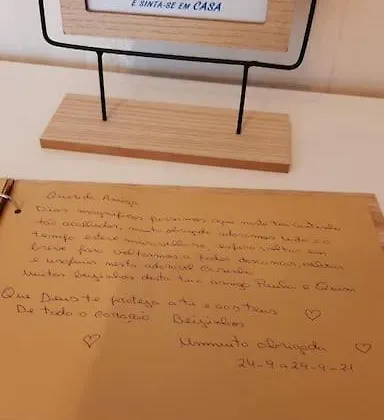 E SINTA-SE EM CASA
Querida Amiga
Dias magníficos passamos aqui neste teu cantinho
tão acolhedor, muito obrigada adoramos tudo e o
tempo esteve maravilhoso, espero voltar em
breve para voltarmos a todos descansar,
e usufruir nesta adorável casinha
Muitos beijinhos desta tua amiga Paula e
Que Deus te proteja a ti e aos teus
De todo o coração Beijinhos
Um muito obrigada
24-9 a 29-9-21